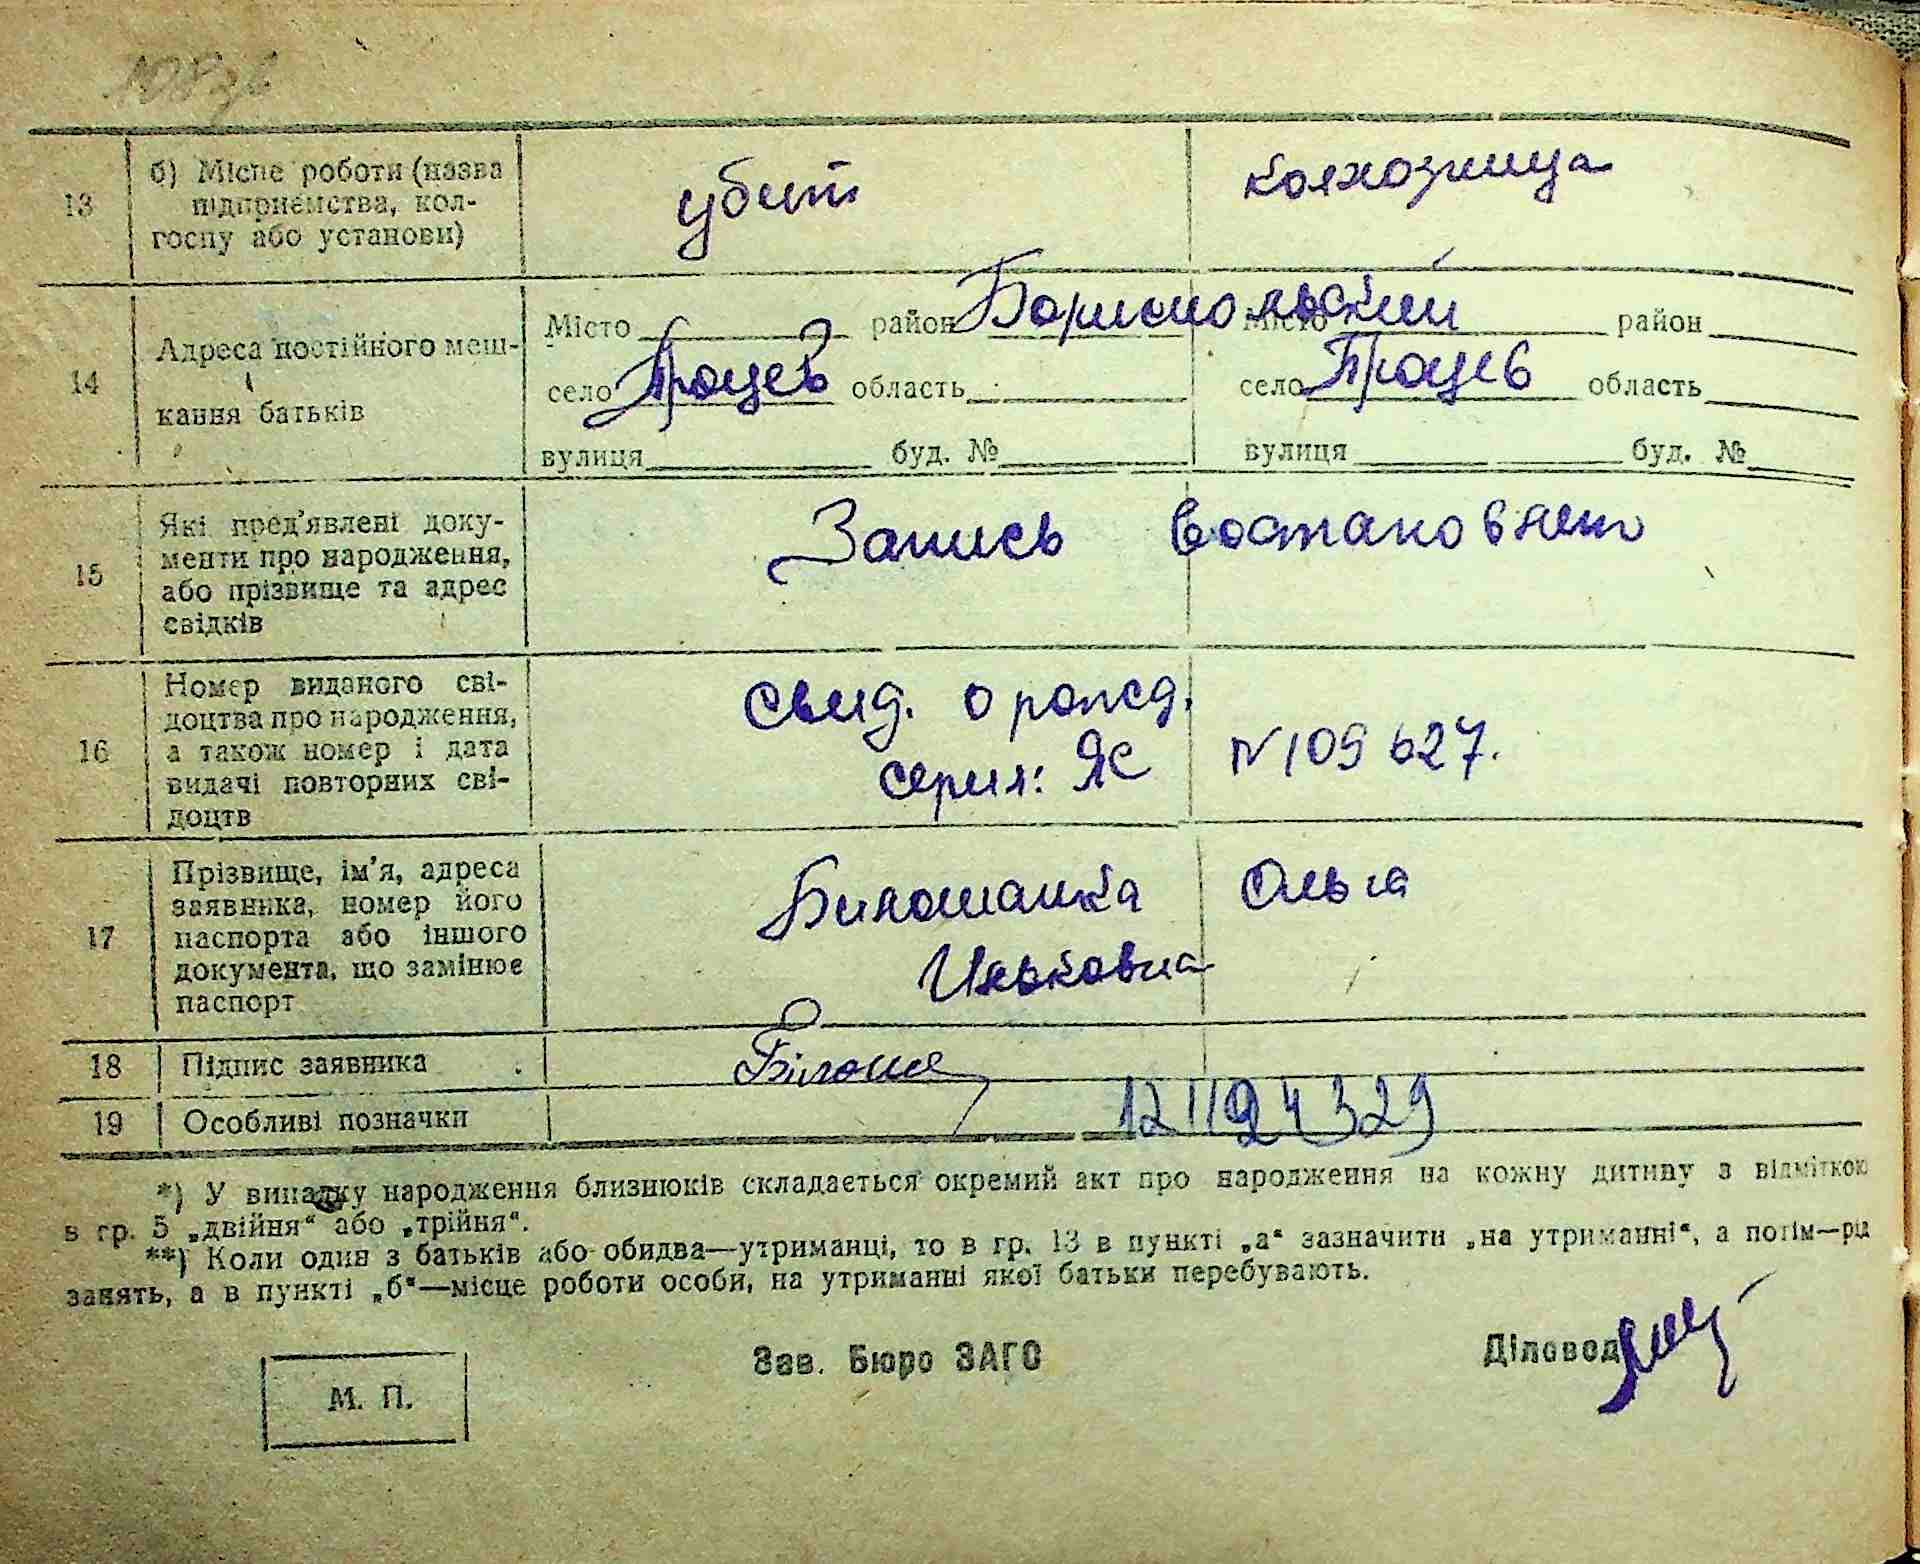 13 б) Місце роботи (назва підприємства, колгоспу або установи) убит колхозница
14 Адреса постійного мешкання батьків
Місто район Бориспольский Місто район
село Процев область село Процев область
вулиця буд. № вулиця буд. №
15 Які пред'явлені документи про народження, або прізвище та адрес свідків Запись востановлен
16 Номер виданого свідоцтва про народження, а також номер і дата видачі повторних свідоцтв свид. о рожд.
серия: ЯС N 109627.
17 Прізвище, ім'я, адреса заявника, номер його паспорта або іншого документа, що замінює паспорт Билошапка Ольга
Ильковна
18 Підпис заявника
19 Особливі позначки
*) У випадку народження близнюків складається окремий акт про народження на кожну дитину з відміткою
в гр. 5 „двійня“ або „трійня“.
**) Коли один з батьків або обидва—утриманці, то в гр. 13 в пункті „а“ зазначити „на утриманні“, а потім—рід
занять, а в пункті „б“—місце роботи особи, на утриманні якої батьки перебувають.
М. П. Зав. Бюро ЗАГС Діловод